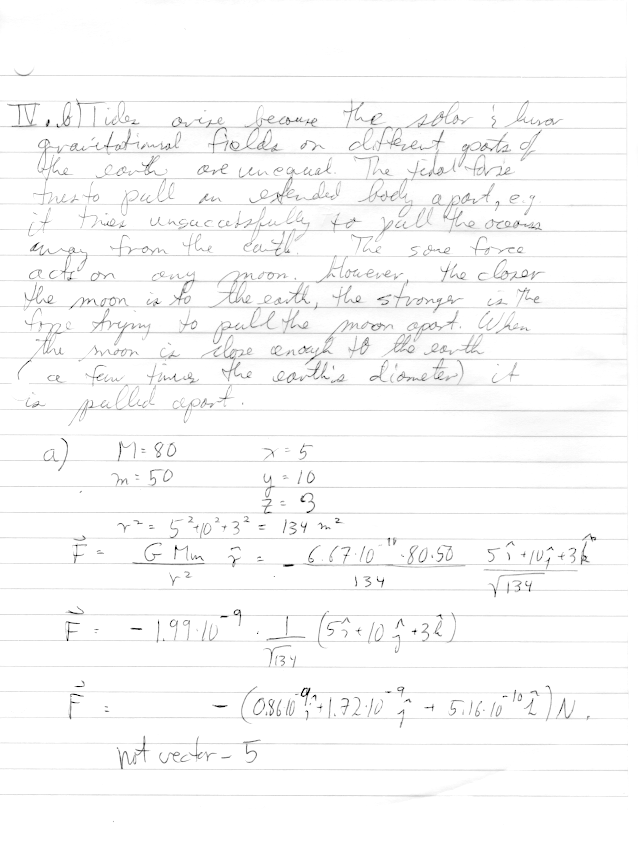 IV. b) Tides arise because the solar & lunar
gravitational fields on different parts of
the earth are unequal. The tidal force
tries to pull an extended body apart, e.g
it tries unsuccessfully to pull the oceans
away from the earth. The same force
acts on any moon. However, the closer
the moon is to the earth, the stronger is the
force trying to pull the moon apart. When
the moon is close enough to the earth
(a few times the earth's diameter) it
is pulled apart.
a) M = 80 x = 5
m = 50 y = 10
z = 3
r² = 5² + 10² + 3² = 134 m²
F⃗ = G M m / r² r̂ = - 6.67·10⁻¹¹·80·50 / 134 5î + 10ĵ + 3k̂ / √134
F⃗ = - 1.99·10⁻⁹ · 1/√134 (5î + 10ĵ + 3k̂)
F⃗ = - (0.86 10⁻⁹ î + 1.72·10⁻⁹ ĵ + 5.16·10⁻¹⁰ k̂) N.
not vector - 5